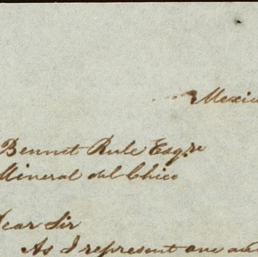 Mexic
Bennet Rule Esqre
Mineral del Chico
Dear Sir
As I represent one an